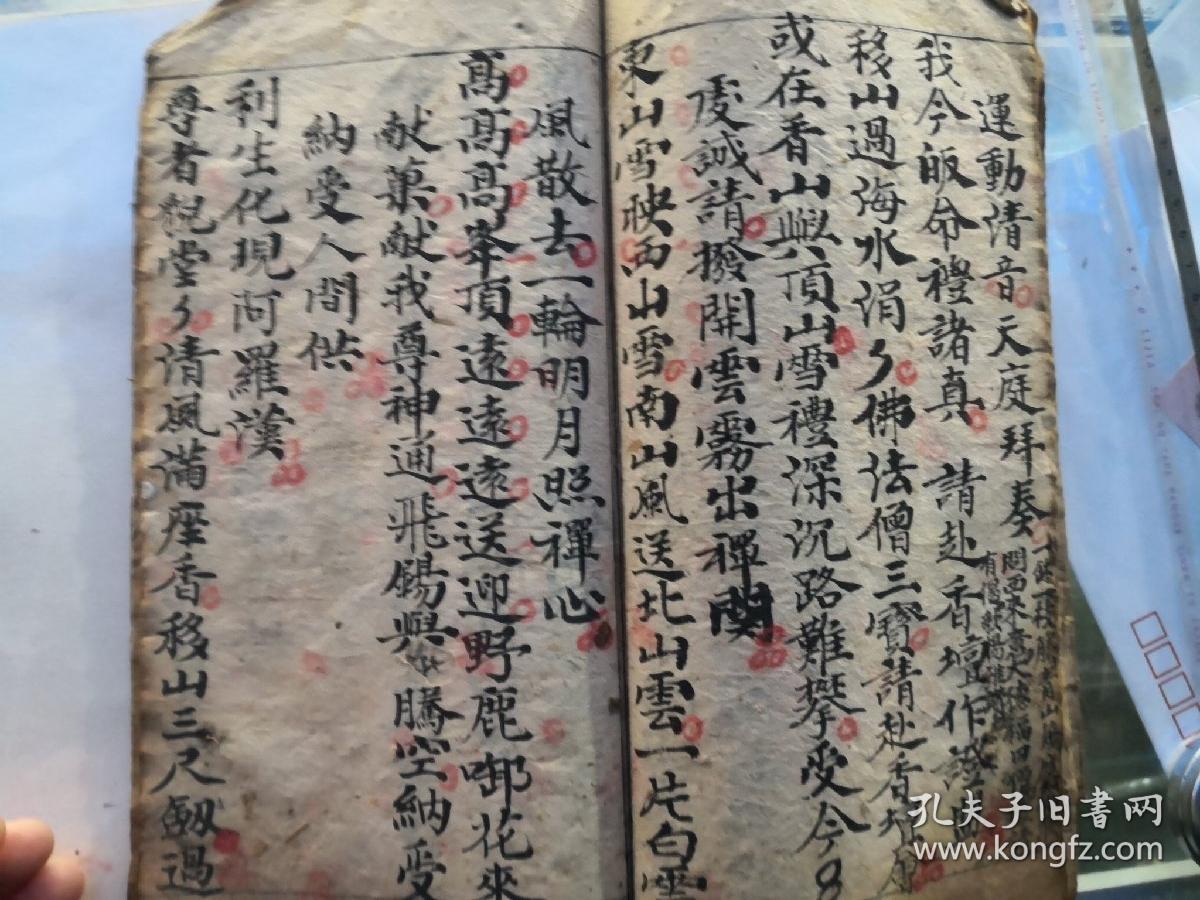 運動清音天庭拜奏
我今皈命禮諸真 請赴香壇作證
移山過海水涓々佛法僧三寳請赴香
或在香山與頂山雪禮深沉路難攀受今
虔誠請撥開雲霧出禪関
東山雪映西山雪南山風送北山雲一片白雲
風散去一輪明月照禪心
萬高高峯頂遠遠遠送迎野鹿啣花來
献菓献我尊神通飛錫與騰空納受
納受人間供
利生化現阿羅漢
尊者堂々清風滿座香移山三尺劔過
孔夫子旧书网
www.kongfz.com